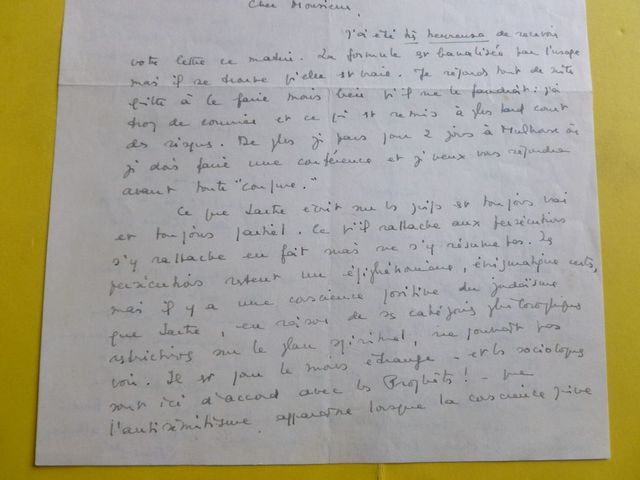 Cher Monsieur,
J'ai été très heureuse de recevoir
votre lettre ce matin. La formule est banalisée par l'usage
mais il se trouve qu'elle est vraie. Je réponds tout de suite
quitte à le faire mais bien qu'il ne le faudrait : j'ai
trop de courrier et ce qui est remis à plus tard court
des risques. De plus je pars pour 2 jours à Mulhouse où
je dois faire une conférence et je veux vous répondre
avant toute "coupure."
Ce que Sartre écrit sur les juifs est toujours vrai
et toujours partiel. Ce qu'il rattache aux persécutions
s'y rattache en fait mais ne s'y résume pas. Les
persécutions restent un épiphénomène, énigmatique certes,
mais il y a une conscience positive du judaïsme
que Sartre, en raison de ses catégories philosophiques
restrictives sur le plan spirituel, ne pouvait pas
voir. Il est pour le moins étrange - et les sociologues
sont ici d'accord avec les Prophètes ! - que
l'antisémitisme apparaisse lorsque la conscience juive